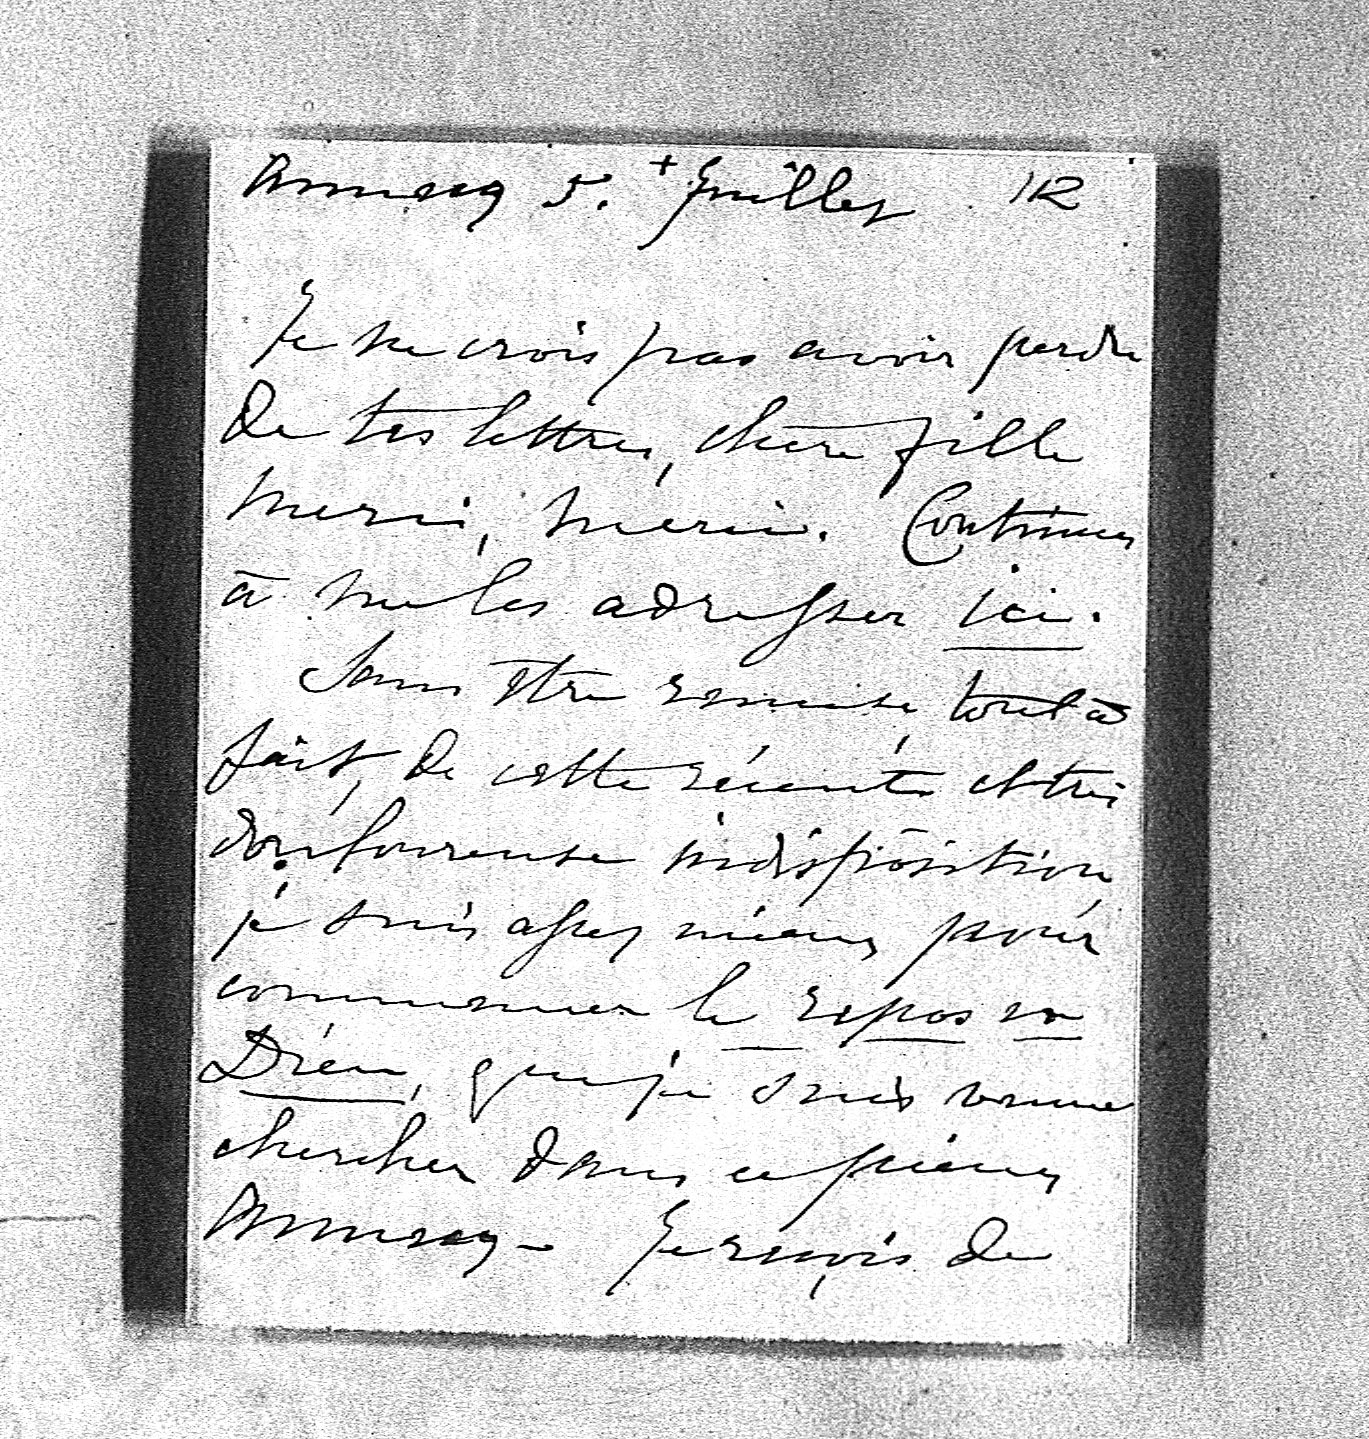 Annecy 5. + Juillet 112
Je ne crois pas avoir perdu
de tes lettres, chère fille
merci, merci. Continues
à me les adresser ici.
Sans être remise, tout à
fait, de cette récente et très
douloureuse indisposition
je suis assez mieux pour
commencer le repos en
Dieu, que je suis venue
chercher dans ce pieux
Annecy - Je reçois de